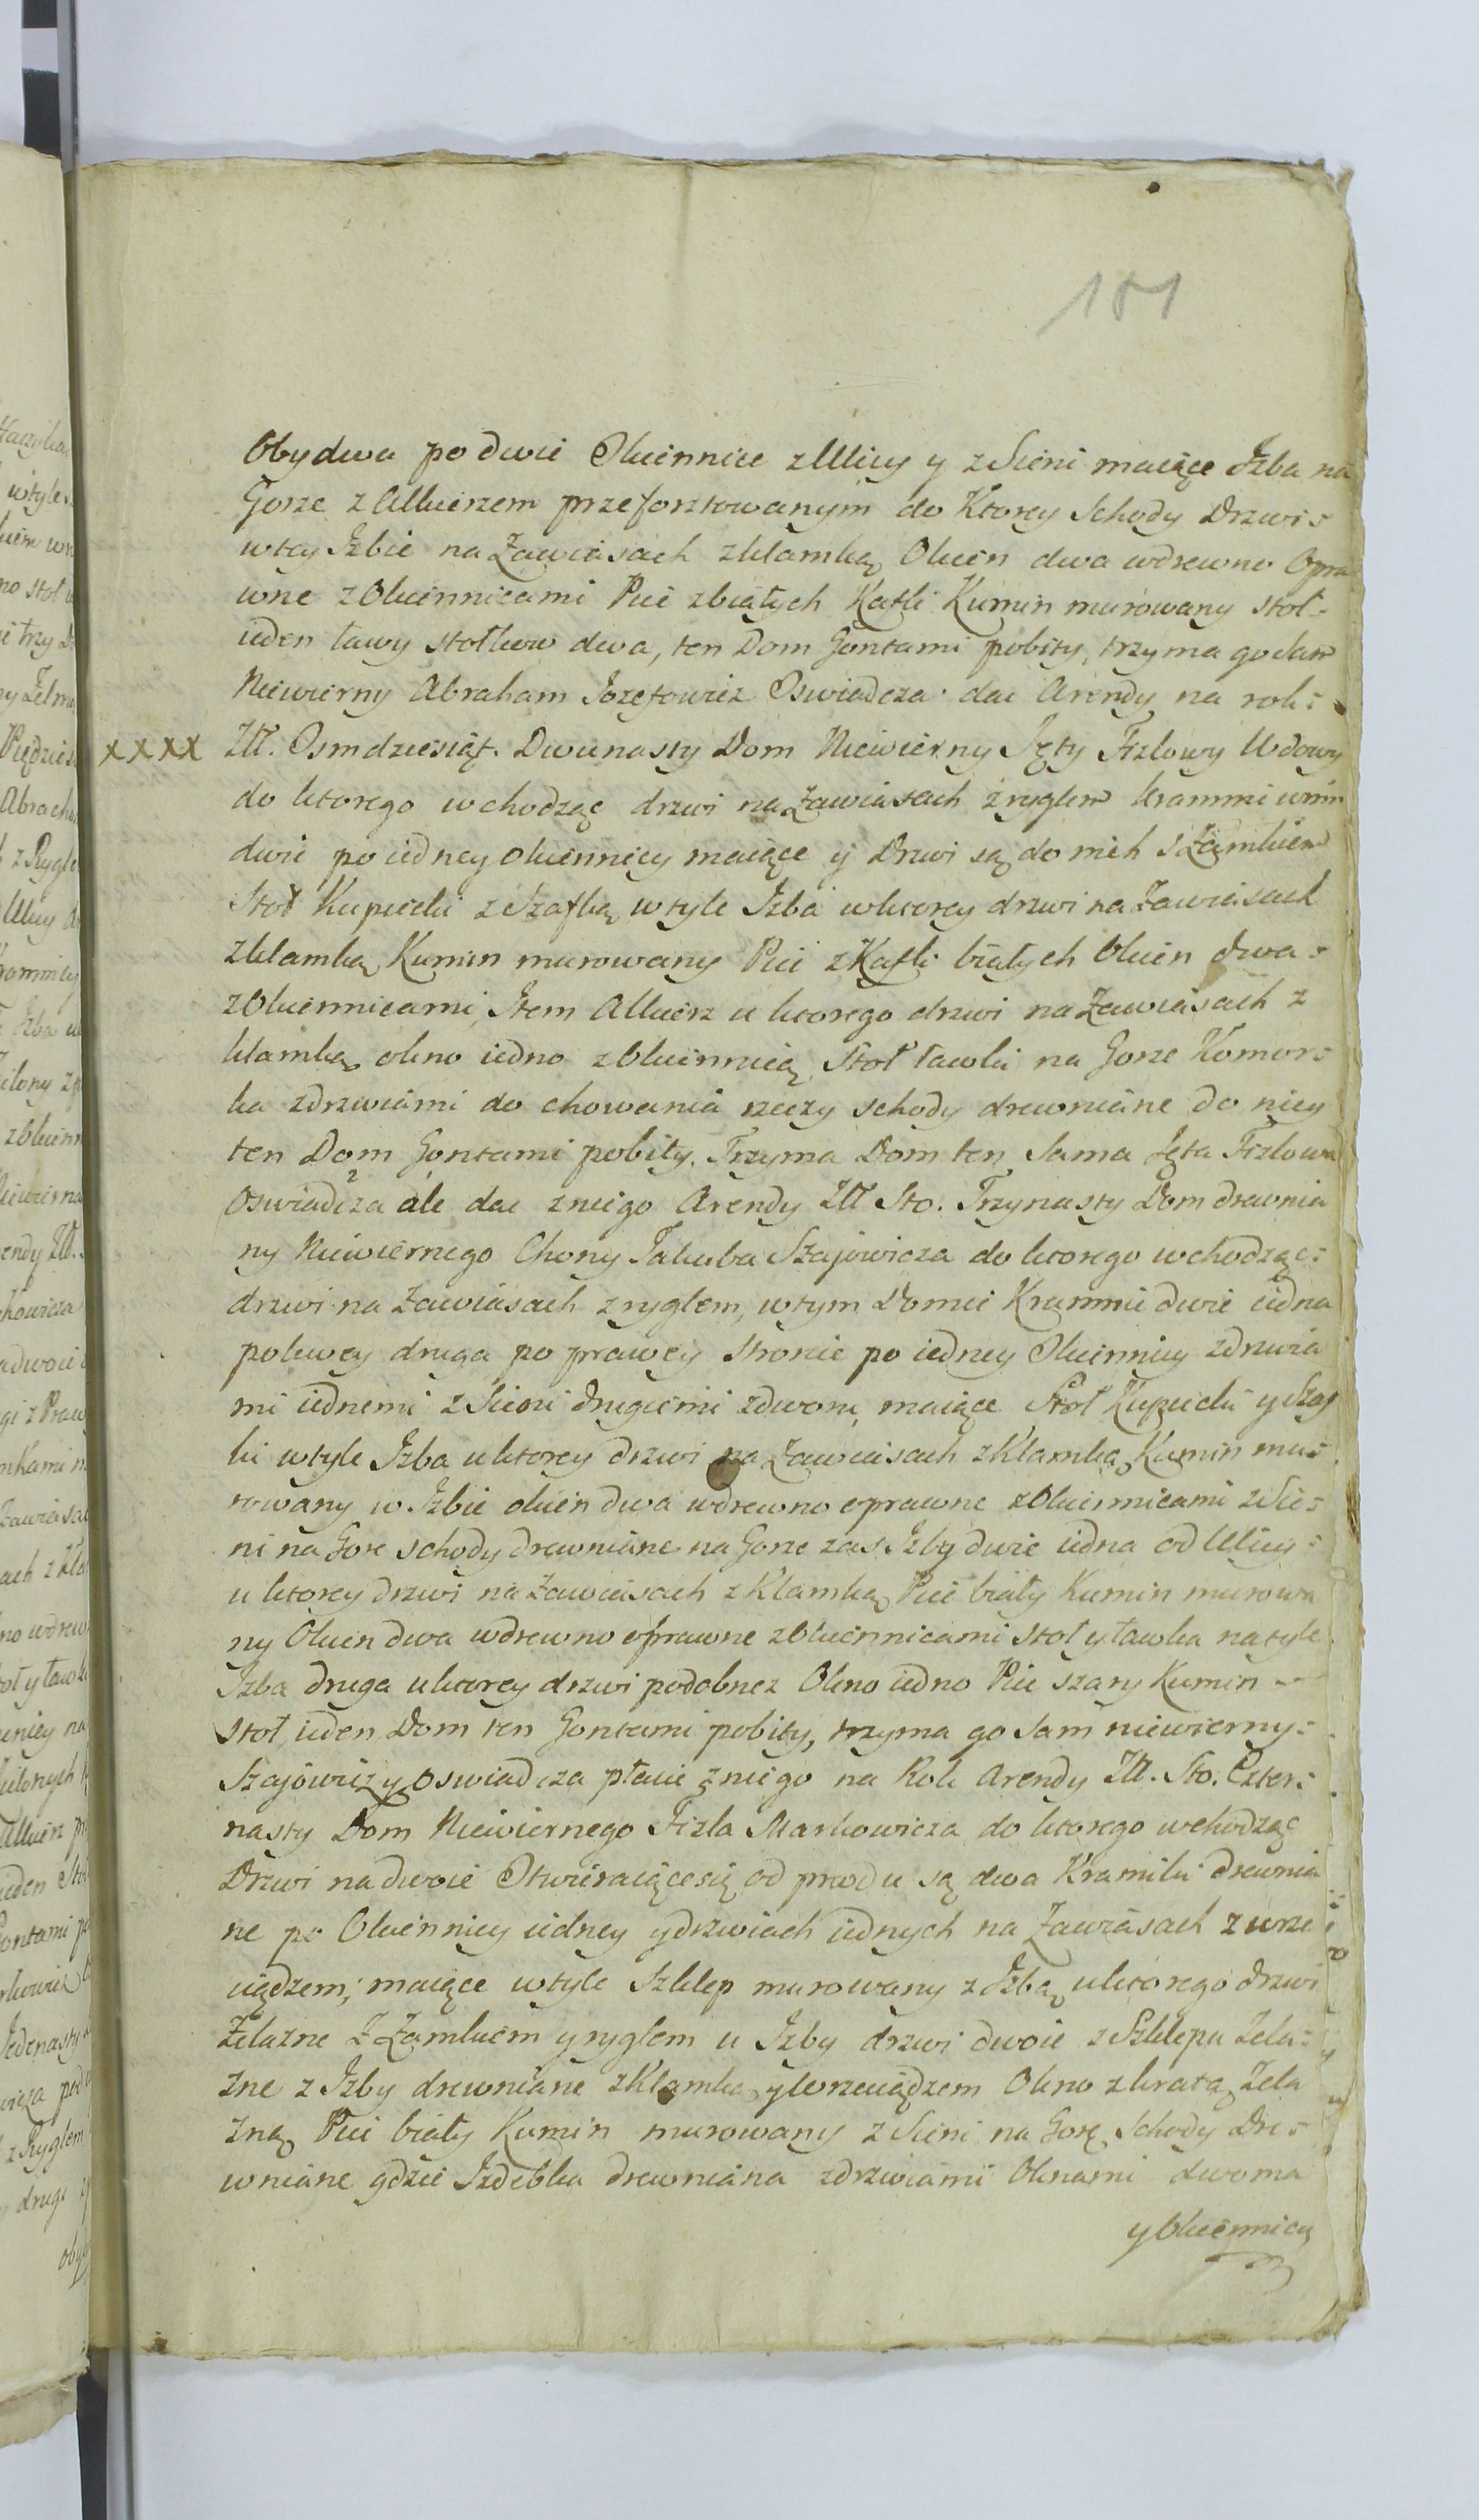 181
Obydwa po dwie Okiennice z Ulicy y z Sieni maiące Izba na
Gorze z Alkierzem przeforsztowanym do Ktorey Schody Drzwi=
w tey Izbie na Zawiasach z klamką Okien dwa w drewno Opra
wne z Okiennicami Piec z białych Kafli Kumin murowany stoł=
ieden ławy stołkow dwa, ten Dom Gontami pobity, trzyma go Sam
Niewierny Abraham Jozefowicz Oswiadcza dac Arendy na rok=
XXXX Złł. Osmdziesiąt. Dwunasty Dom Niewierny Ięty Fizlowy Wdowy
do ktorego wchodząc drzwi na Zawiasach z ryglem krammi w nim
dwie po iedney okiennicy maiące y Drzwi są do nich s Zamkiem
Stoł Kupiecki z Szafką w tyle Izba w ktorey drzwi na Zawiasach
z klamką Kumin murowany Piec z Kafli białych Okien dwa=
z Okiennicami, Item Alkierz u ktorego drzwi na Zawiasach z
klamką okno iedno z Okiennicą Stoł ławki na Gorze Komor=
ka z drzwiami do chowania rzeczy schody drewniane do niey
ten Dom Gontami pobity. Trzyma Dom ten Sama Ięta Fizlowa
Oswiadcza ale dac z niego Arendy Złł Sto. Trzynasty Dom drewnia
ny Niewiernego Chony Jakuba Szajowicza do ktorego wchodząc=
drzwi na Zawiasach z ryglem, w tym Domie Krammie dwie iedna
po lewey druga po prawey stronie po iedney Okiennicy z drzwia
mi iednemi z Sieni drugiemi z dworu maiące Stoł Kupiecki y Szaf
ki w tyle Izba u ktorey drzwi na Zawiasach z Klamką Kumin mu=
rowany w Izbie okien dwa w drewno oprawne z Okiennicami z Sie=
ni na Gorę schody drewniane na Gorze zas Izby dwie iedna od Ulicy=
u ktorey drzwi na Zawiasach z Klamką Piec biały Kumin murowa
ny Okien dwa w drewno oprawne z Okiennicami stoł y ławka na tyle
Izba druga u ktorey drzwi podobnez Okno iedno Piec szary Kumin
stoł ieden Dom ten Gontami pobity, trzyma go Sam niewierny=
Szajowicz y oswiadcza płacic z niego na Rok Arendy Złł. Sto. Czter=
nasty Dom Niewiernego Fizla Markowicza do ktorego wchodząc
Drzwi na dwoie Otwieraiące się od przodu są dwa Kramiki drewnia
ne po Okiennicy iedney y drzwiach iednych na Zawiasach z wrze
ciądzem; maiące w tyle Szklep murowany z Izbą u ktorego drzwi
Zelazne Z Zamkiem y ryglem u Izby drzwi dwoie z Szklepu Zela=
zne z Izby drewniane z Klamką y Wrzeciądzem Okno z kratą Zela
zną Piec biały Kumin murowany z Sieni na Gorę Schody Dre=
wniane gdzie Izdebka drewniana z drzwiami Oknami dwoma
y Okiennicą